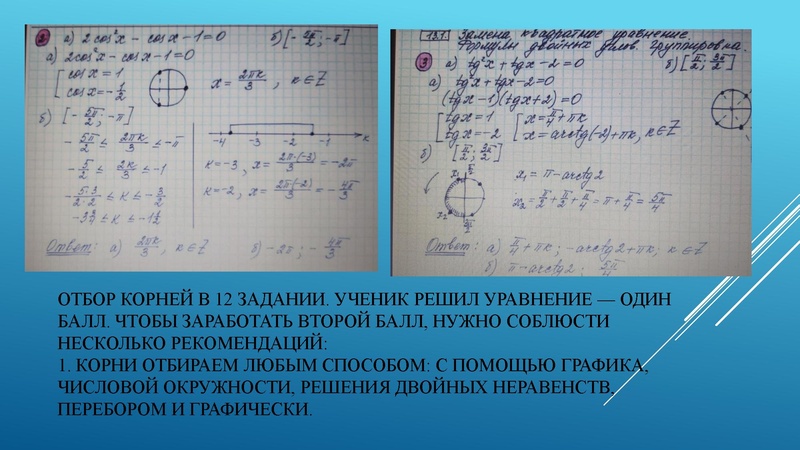 2 а) 2cos²x - cosx - 1 = 0 б) [-5π/2; -π]
а) 2cos²x - cosx - 1 = 0
[cosx = 1
cosx = -1/2
x = 2πк/3, к ∈ Z
б) [-5π/2; -π]
-5π/2 ≤ 2πк/3 ≤ -π
-5/2 ≤ 2к/3 ≤ -1
-5·3/2·2 ≤ к ≤ -3/2
-3 3/4 ≤ к ≤ -1 1/2
-4 -3 -2 -1 к
к = -3, x = 2π·(-3)/3 = -2π
к = -2, x = 2π(-2)/3 = -4π/3
Ответ: а) 2πк/3, к ∈ Z б) -2π; -4π/3
13.1. Замена, квадратное уравнение.
Формулы двойных углов. Группировка.
3 а) tg²x + tgx - 2 = 0 б) [π/2; 3π/2]
а) tg²x + tgx - 2 = 0
(tgx - 1)(tgx + 2) = 0
[tgx = 1 [x = π/4 + πк
tgx = -2 x = arctg(-2) + πк, к ∈ Z
б) [π/2; 3π/2]
x₁ π/2
x₂ 3π/2
x₁ = π - arctg2
x₂ = π/2 + π/2 + π/4 = π + π/4 = 5π/4
Ответ: а) π/4 + πк; -arctg2 + πк; к ∈ Z
б) π - arctg2; 5π/4
ОТБОР КОРНЕЙ В 12 ЗАДАНИИ. УЧЕНИК РЕШИЛ УРАВНЕНИЕ — ОДИН
БАЛЛ. ЧТОБЫ ЗАРАБОТАТЬ ВТОРОЙ БАЛЛ, НУЖНО СОБЛЮСТИ
НЕСКОЛЬКО РЕКОМЕНДАЦИЙ:
1. КОРНИ ОТБИРАЕМ ЛЮБЫМ СПОСОБОМ: С ПОМОЩЬЮ ГРАФИКА,
ЧИСЛОВОЙ ОКРУЖНОСТИ, РЕШЕНИЯ ДВОЙНЫХ НЕРАВЕНСТВ,
ПЕРЕБОРОМ И ГРАФИЧЕСКИ.